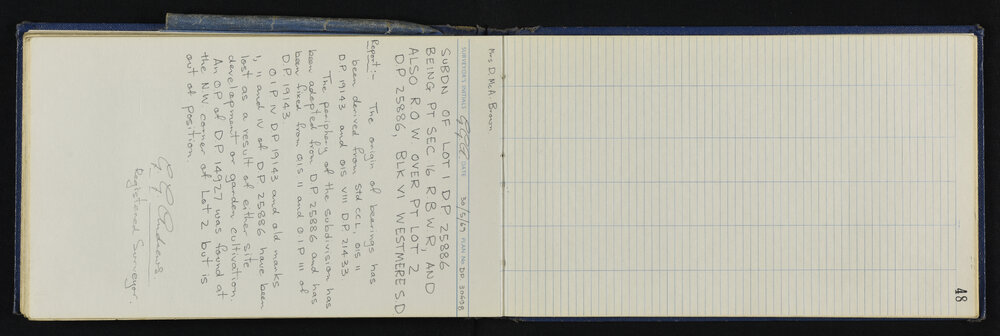 SURVEYOR'S INITIALS DATE 30/5/69 PLAN No. DP. 30608
SUBDN OF LOT 1 DP 25886
BEING PT SEC 16 R B W R, AND
ALSO R O W OVER PT LOT 2
DP 25886, BLK VI WESTMERE S.D.
Report:- The origin of bearings has
been derived from Std CCL, OIS II
DP 19143 and OIS VIII DP. 21433.
The periphery of the subdivision has
been adopted from DP 25886 and has
been fixed from OIS II and O.I.P III of
DP 19143.
O I P IV DP 19143 and old marks
I, II and IV of DP 25886 have been
lost as a result of either site
development or garden cultivation.
An OP of DP 14927 was found at
the NW corner of Lot 2 but is
out of position.
Registered Surveyor.
Mrs D. McA. Brown
48